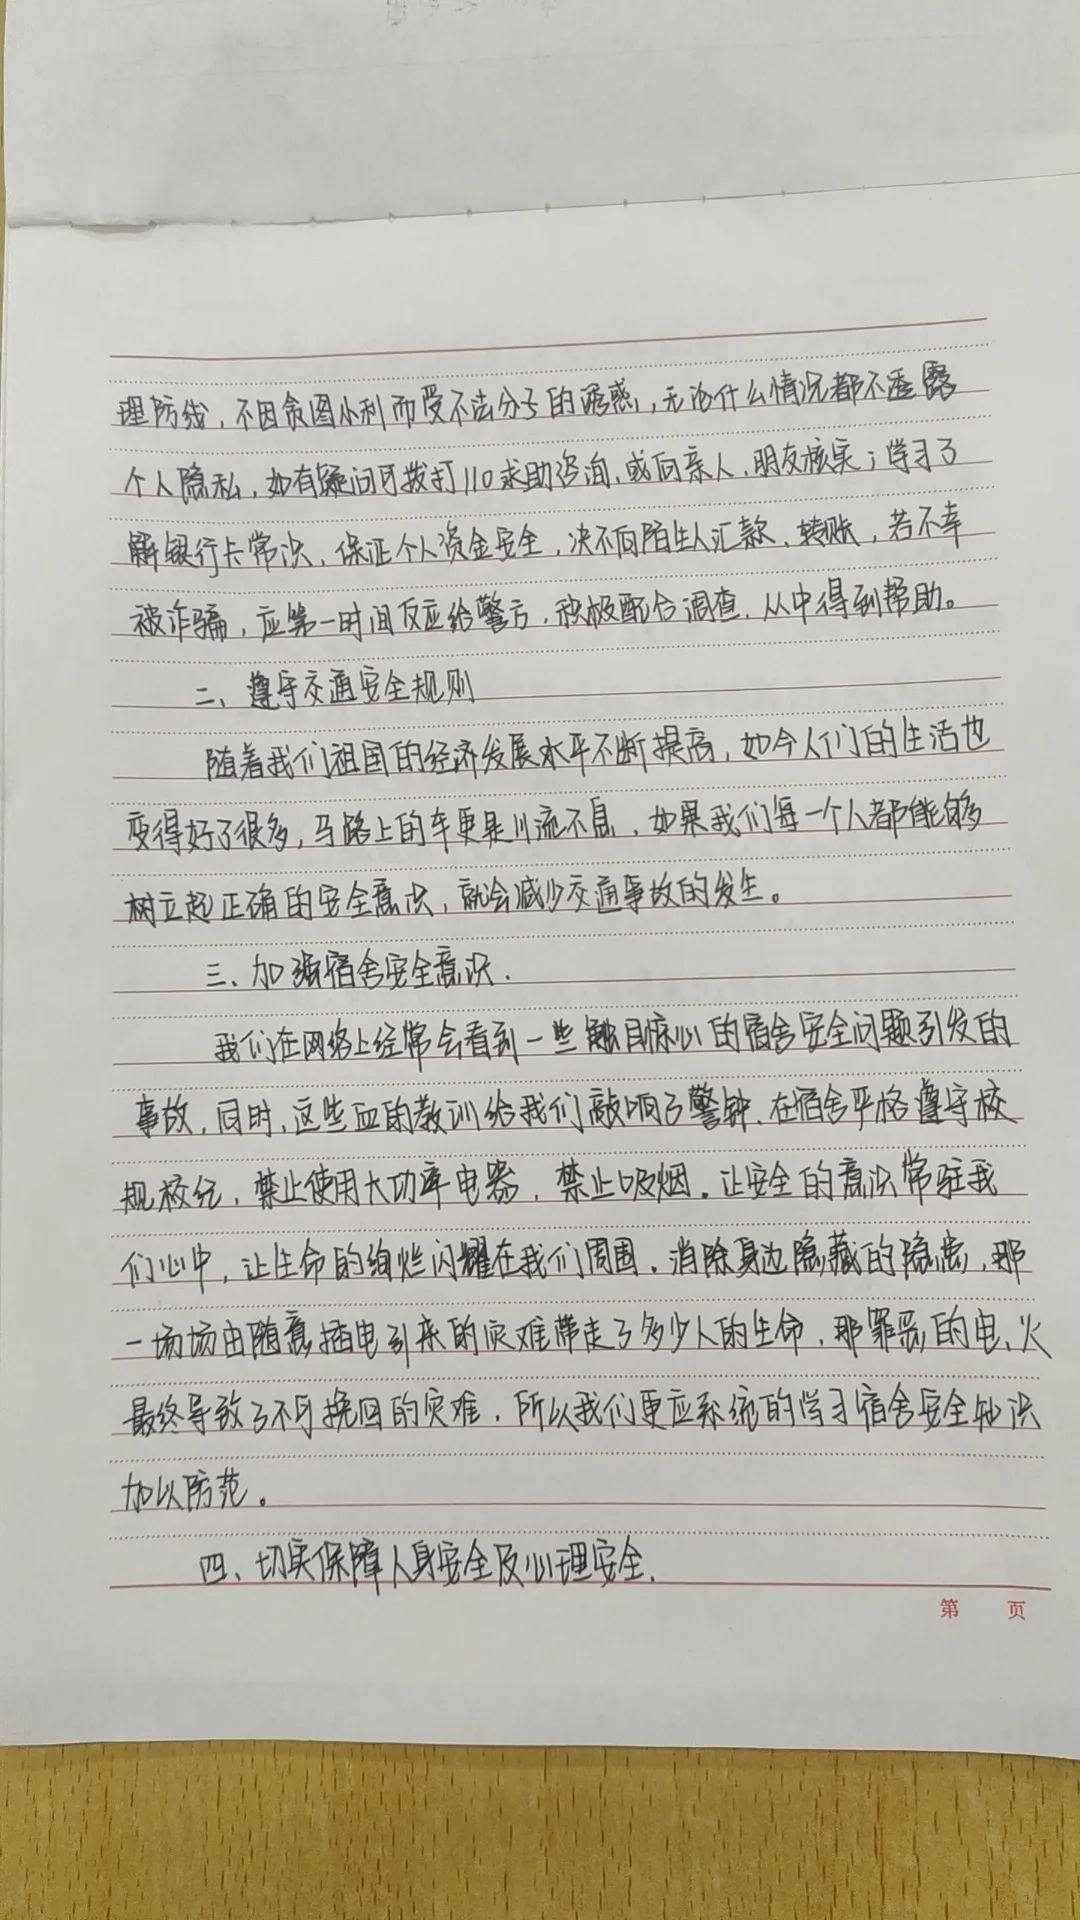 理防线，不因贪图小利而受不法分子的诱惑，无论什么情况都不透露
个人隐私，如有疑问可拨打110求助咨询，或向亲人、朋友核实；学习了
解银行卡常识，保证个人资金安全，决不向陌生人汇款、转账，若不幸
被诈骗，应第一时间反应给警方，积极配合调查，从中得到帮助。
二、遵守交通安全规则
随着我们祖国的经济发展水平不断提高，如今人们的生活也
变得好了很多，马路上的车更是川流不息，如果我们每一个人都能够
树立起正确的安全意识，就会减少交通事故的发生。
三、加强宿舍安全意识.
我们在网络上经常会看到一些触目惊心的宿舍安全问题引发的
事故，同时，这些血的教训给我们敲响了警钟，在宿舍严格遵守校
规校纪，禁止使用大功率电器，禁止吸烟。让安全的意识常驻我
们心中，让生命的绚烂闪耀在我们周围。消除身边隐藏的隐患，那
一场场由随意插电引来的灾难带走了多少人的生命，那罪恶的电、火
最终导致了不可挽回的灾难，所以我们更应系统的学习宿舍安全知识
加以防范。
四、切实保障人身安全及心理安全.
第 页